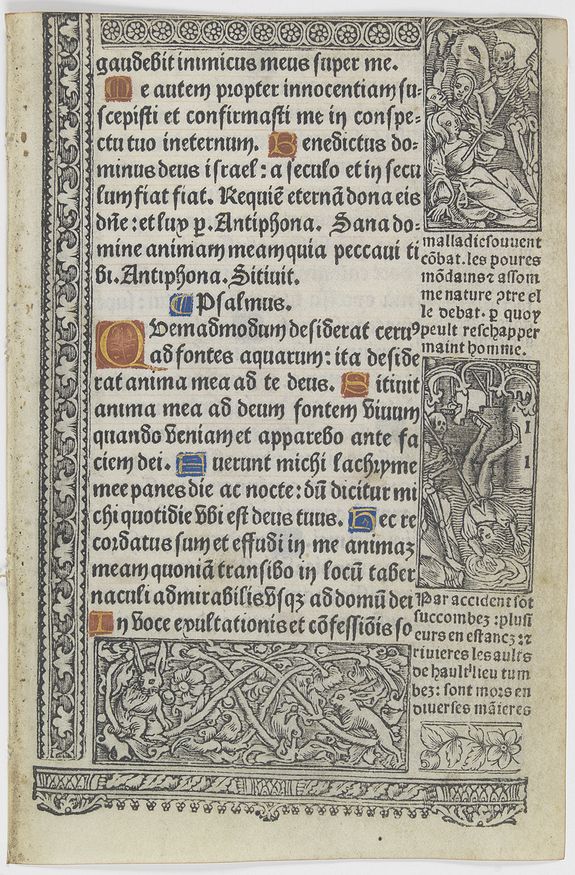 gaudebit inimicus meus super me.
Me autem propter innocentiam su-
scepisti et confirmasti me in conspe-
ctu tuo ineternum. Benedictus do-
minus deus israel: a seculo et in secu
lum fiat fiat. Requiē eternā dona eis
dn̄e: et lux p. Antiphona. Sana do-
mine animam meam quia peccaui ti
bi. Antiphona. Sitiuit.
Psalmus.
Quemadmodum desiderat ceruꝰ
ad fontes aquarum: ita deside
rat anima mea ad te deus. Sitiuit
anima mea ad deum fontem viuum
quando veniam et apparebo ante fa
ciem dei. Fuerunt michi lachryme
mee panes die ac nocte: dū dicitur mi
chi quotidie vbi est deus tuus. Hec re
cordatus sum et effudi in me animaꝫ
meam quoniā transibo in locū taber
naculi admirabilis vsqꝫ ad domū dei
In voce exultationis et cōfessiōis so
malladie souuent
cōbat. les poures
mōdains ⁊ assom
me nature ꝯtre el
le debat. p quoy
peult reschapper
maint homme.
Par accident sōt
succombez: plusi
eurs en estancz: ⁊
riuieres les aults
de hault lieu tum
bez: sont mors en
diuerses māieres